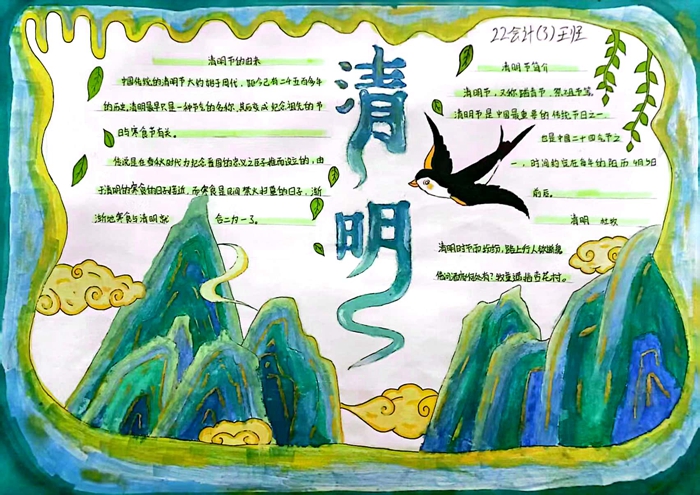 22会计(3)王珏
清明节的由来
中国传统的清明节大约始于周代，距今已有二千五百多年
的历史，清明最早只是一种节气的名称，其后变成纪念祖先的节
日与寒食节有关。
传说是在春秋时代为纪念晋国的忠义之臣子推而设立的，由
于清明的寒食的日子接近，而寒食是民间禁火扫墓的日子，渐
渐地寒食与清明就 合二为一了。
清明
清明节简介
清明节，又称踏青节、祭祖节等，
清明节是中国最重要的传统节日之一
也是中国二十四节气之
一，时间约在每年的阳历4月5日
前后。
清明 杜牧
清明时节雨纷纷，路上行人欲断魂
借问酒家何处有？牧童遥指杏花村。